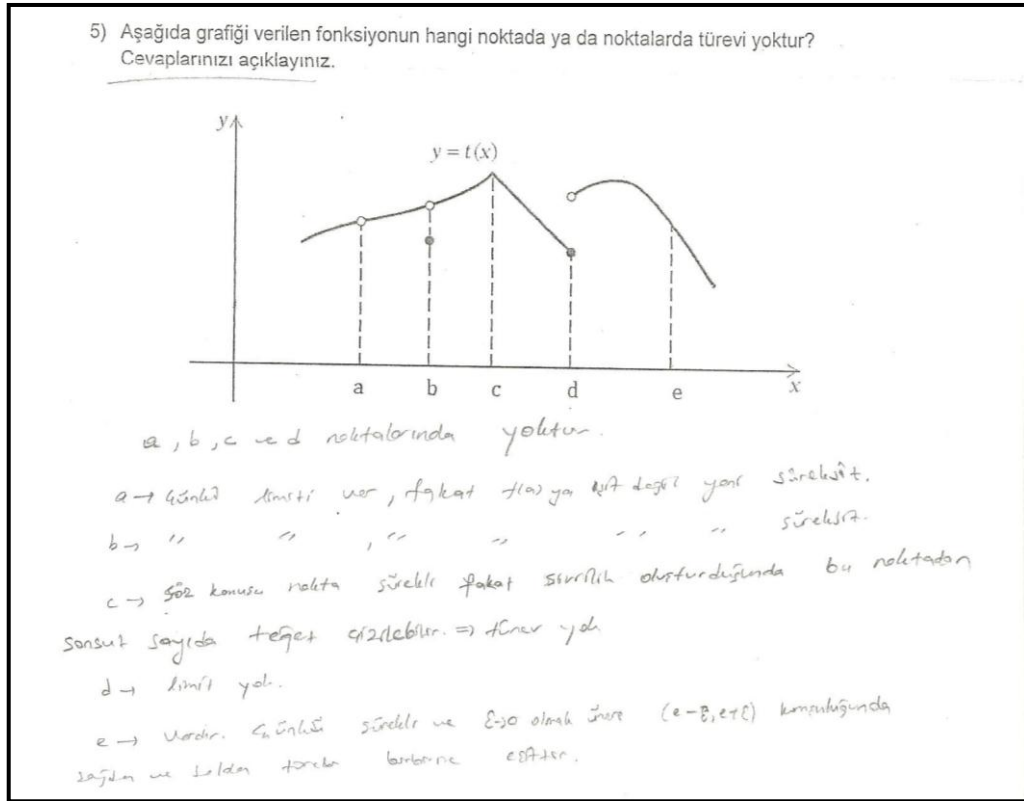 5) Aşağıda grafiği verilen fonksiyonun hangi noktada ya da noktalarda türevi yoktur?
Cevaplarınızı açıklayınız.
y
y = t(x)
a b c d e x
a, b, c ve d noktalarında yoktur.
a → Çünkü limiti var, fakat f(a) ya eşit değil yani süreksiz.
b → " " , " " " " " süreksiz.
c → Söz konusu nokta sürekli fakat sivrilik oluşturduğunda bu noktadan
sonsuz sayıda teğet çizilebilir. => türev yok
d → limit yok.
e → Vardır. Çünkü sürekli ve ε→0 olmak üzere (e-ε, e+ε) komşuluğunda
sağdan ve soldan türevler birbirine eşittir.